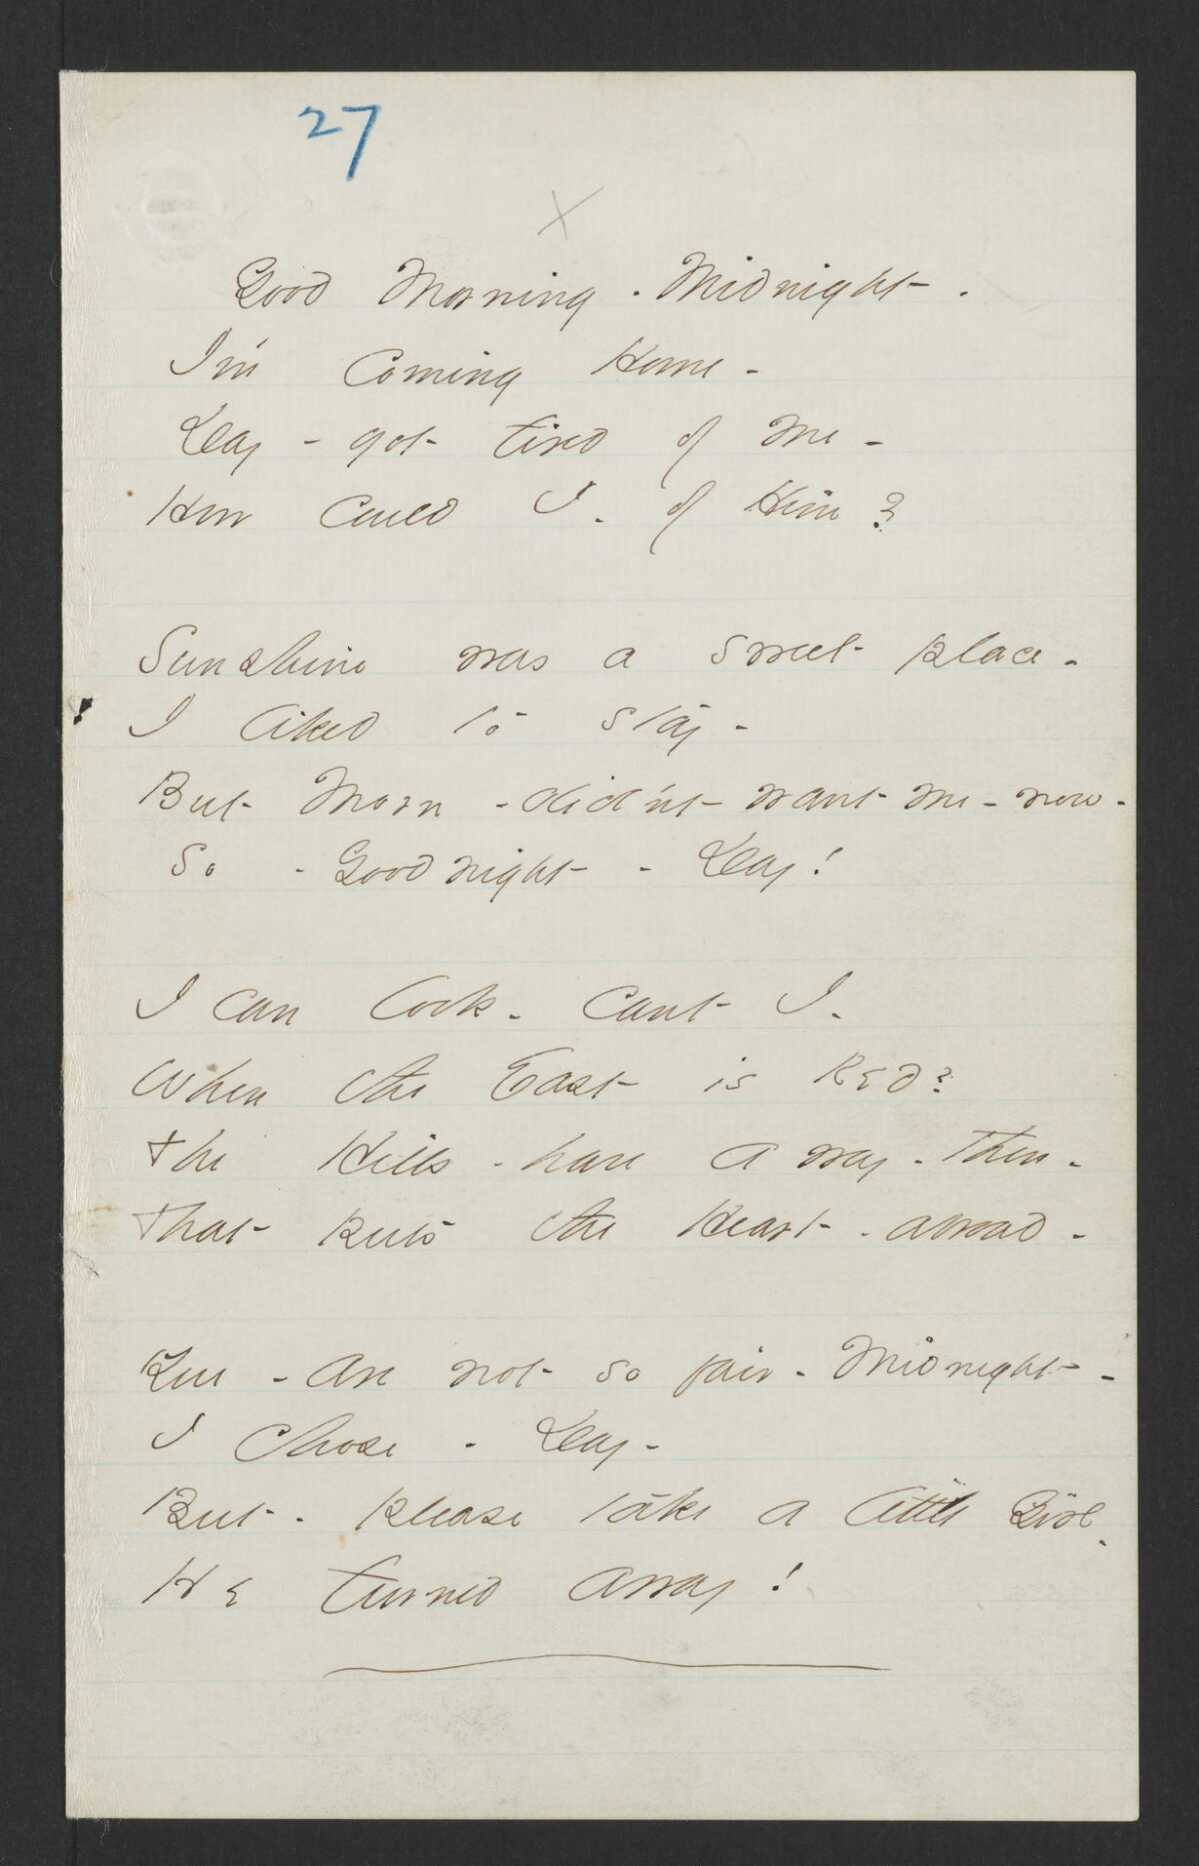 27
X
Good Morning - Midnight -
I'm Coming Home -
Day - got tired of Me -
How could I - of Him?
Sunshine was a sweet place -
I liked to stay -
But Morn - did'nt want me - now -
So - Goodnight - Day!
I can look - cant I -
When the East is Red?
The Hills - have a way - then -
That puts the Heart - abroad -
You - are not so fair - Midnight -
I chose - Day -
But - please take a little Girl -
He turned away!